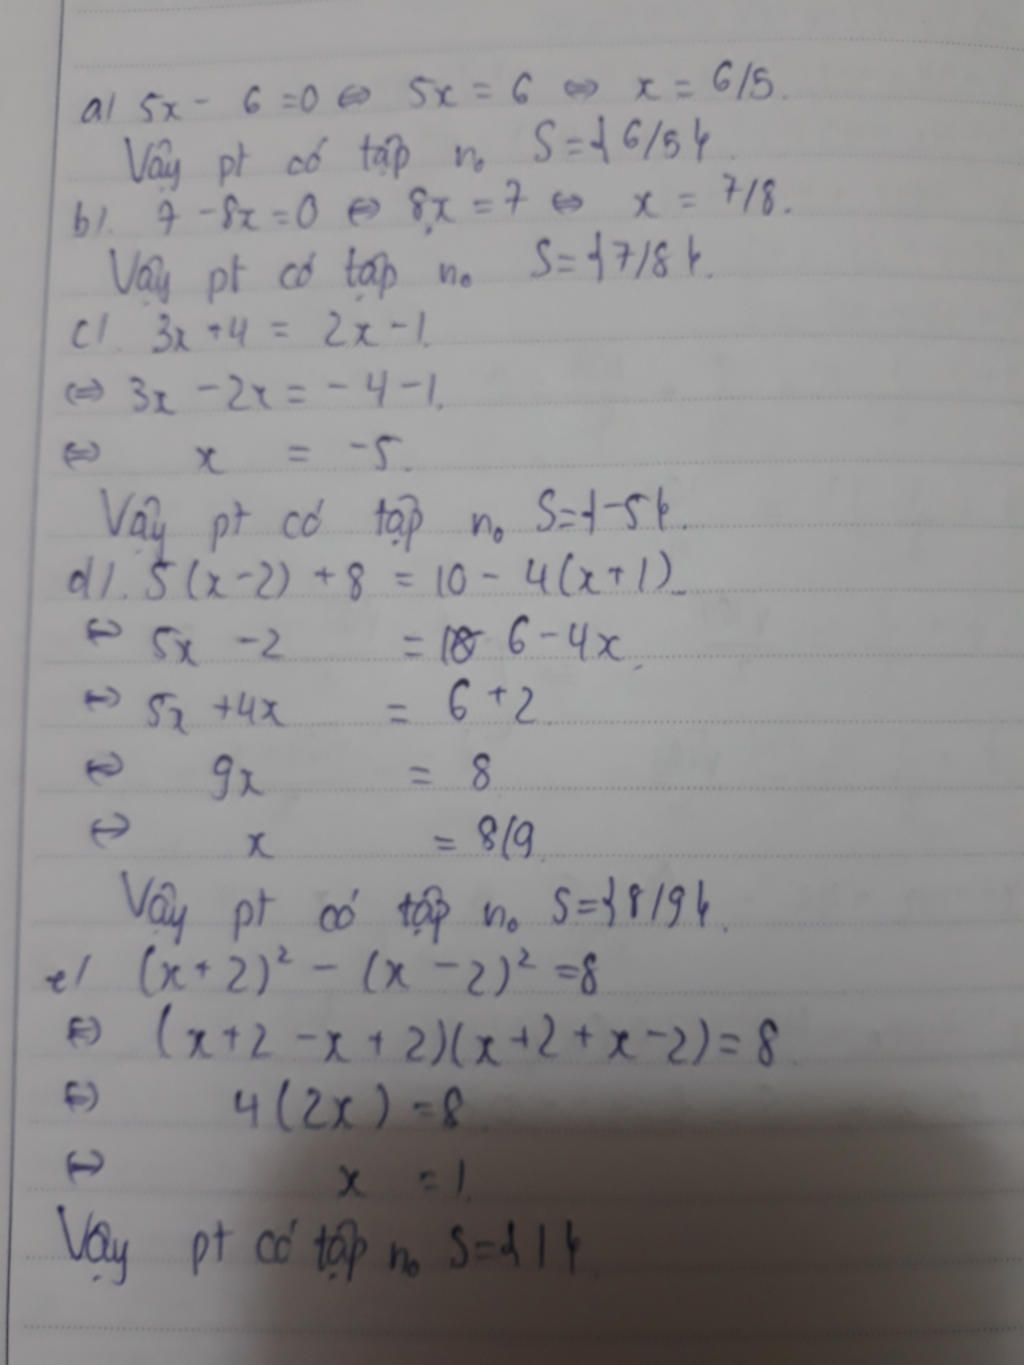 a/ 5x - 6 = 0 ⇔ 5x = 6 ⇔ x = 6/5.
Vậy pt có tập n₀ S = {6/5}.
b/. 7 - 8x = 0 ⇔ 8x = 7 ⇔ x = 7/8.
Vậy pt có tập n₀ S = {7/8}.
c/. 3x + 4 = 2x - 1.
⇔ 3x - 2x = - 4 - 1.
⇔ x = -5.
Vậy pt có tập n₀ S = {-5}.
d/. 5(x - 2) + 8 = 10 - 4(x + 1)
⇔ 5x - 2 = 6 - 4x.
⇔ 5x + 4x = 6 + 2
⇔ 9x = 8
⇔ x = 8/9
Vậy pt có tập n₀ S = {8/9}.
e/ (x + 2)² - (x - 2)² = 8
⇔ (x + 2 - x + 2)(x + 2 + x - 2) = 8
⇔ 4(2x) = 8
⇔ x = 1.
Vậy pt có tập n₀ S = {1}